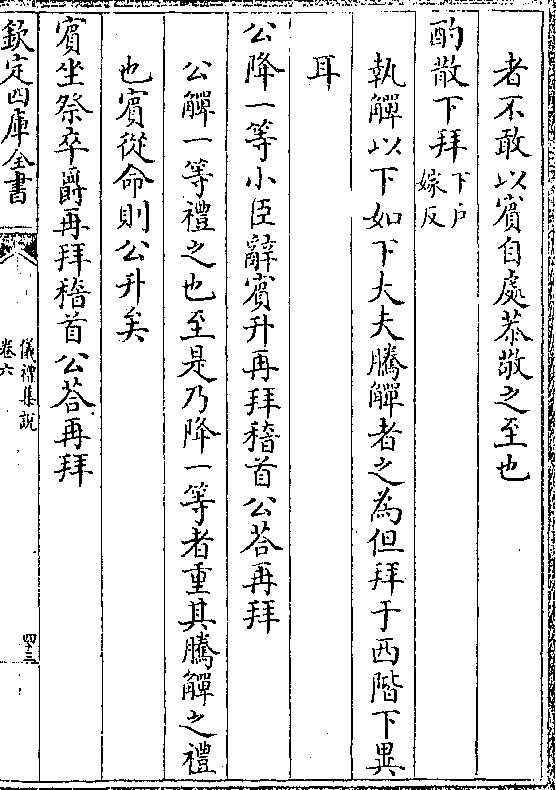 者不敢以賓自處恭敬之至也
酌散下拜下戶嫁反
執觶以下如下大夫騰觶者之為但拜于西階下異
耳
公降一等小臣辭賓升再拜稽首公荅再拜
公觶一等禮之也至是乃降一等者重其騰觶之禮
也賓從命則公升矣
賓坐祭卒爵再拜稽首公荅再拜
欽定四庫全書
儀禮集說
卷六
四三